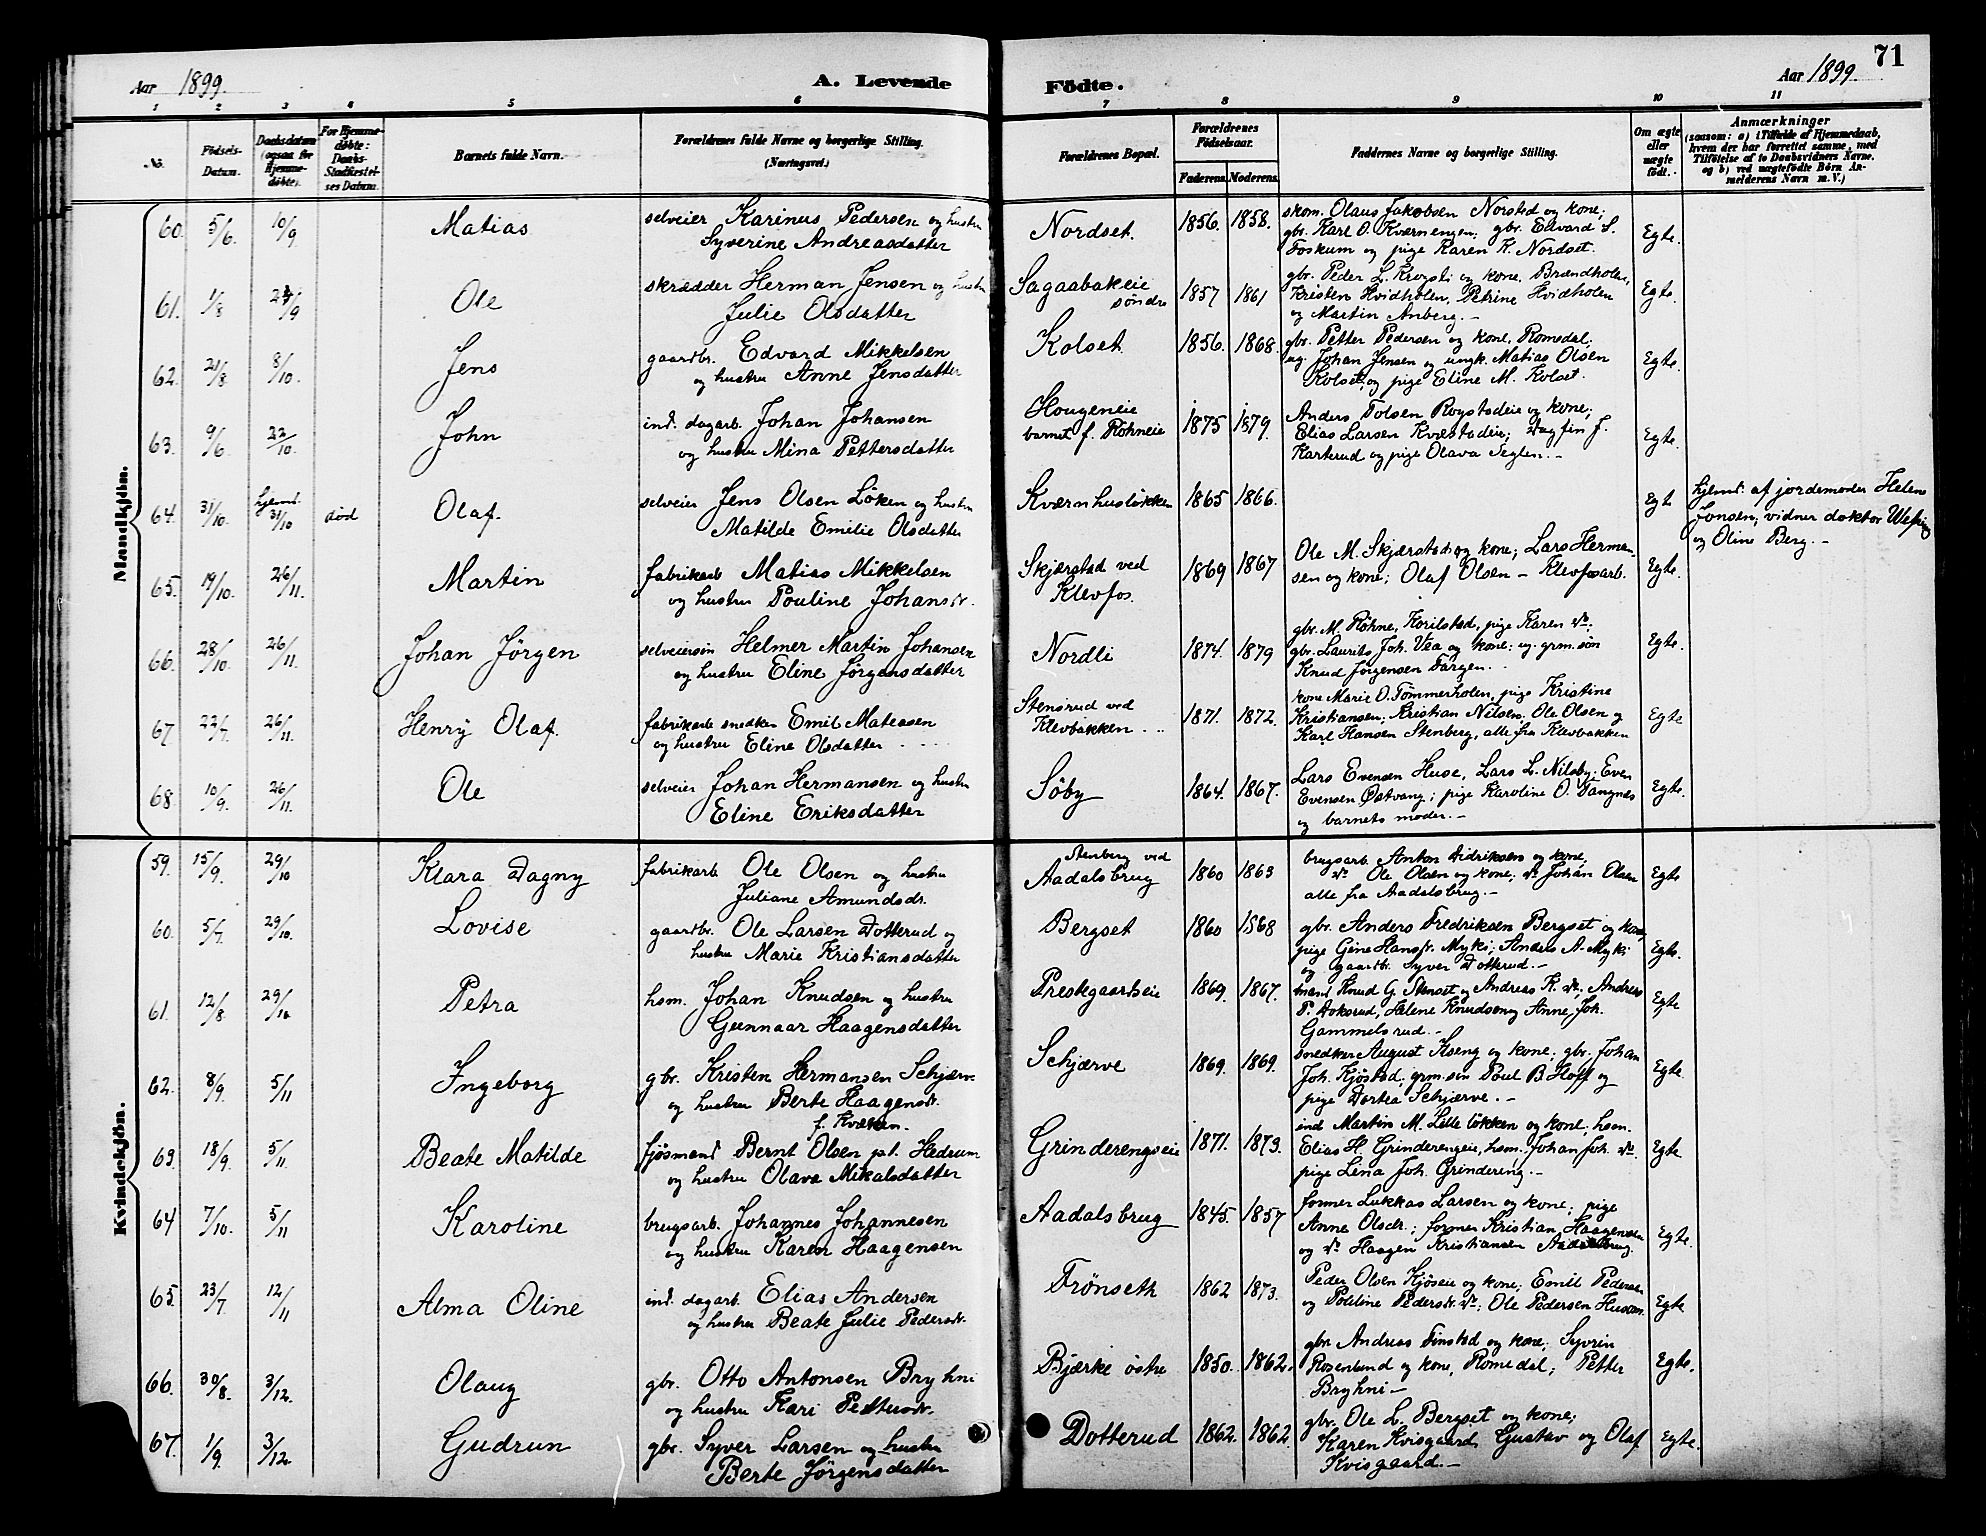 71
Aar 1899. A. Levende Födte. Aar 1899.
1 2 3 4 5 6 7 8 9 10 11
No. Födsels-Datum. Daabsdatum (ogsaa for Hjemmedöbte). For Hjemmedöbte: Daabs-Stadfæstelses Datum. Barnets fulde Navn. Forældrenes fulde Navne og borgerlige Stilling. (Næringsvei.) Forældrenes Bopæl. Forældrenes Födselsaar. Faderens. Moderens. Faddernes Navne og borgerlige Stilling. Om ægte eller uægte født. Anmærkninger (saasom: a) i Tilfælde af Hjemmedaab, hvem der har forrettet samme, med Tilföielse af to Daabsvidners Navne, og b) ved uægtefödte Börn Anmelderens Navn m. V.)
Mandkjön.
60. 5/6. 10/9 Matias selveier Karinus Pedersen og hustru Nordset. 1856. 1858. skom. Olaus Jakobsen Norstad og kone; Egte.
Syverine Andreasdatter gbr. Karl O. Kværnengen; gbr. Edvard S.
Foskum og pige Karen K. Nordset.
61. 1/8 /9 Ole skrædder Herman Jensen og hustru Sagaabakeie søndre 1857 1861 gbr. Peder L. og kone, Brændholen, Egte.
Julie Olsdatter Kristen Hvidholen, Petrine Hvidholen
og Martin Anberg. –
62. 21/8. 8/10. Jens gaardbr. Edvard Mikkelsen Kolset. 1856. 1868. gbr. Petter Pedersen og kone, Romedal, Egte.
og hustru Anne Jensdatter ug. Johan Jensen og ungk. Matias Olsen
Kolset, og pige Eline M. Kolset.
63. 9/6. 22/10. John ind. dagarb. Johan Johansen Hougeneie 1875 1879. Anders Tolsen Rogstadeie og kone; Egte.
og hustru Mina Pettersdatter barnet f. Røhneie Elias Larsen Kvæstadeie; Dagfin J.
Karterud og pige Olava Seglen. –
64. 31/10. hjemd. 31/10 død Olaf. selveier Jens Olsen Løken og hustru Kværnhusløkken 1865 1866. Egt hjemd. af jordemoder Helene
Matilde Emilie Olsdatter Jonsen; vidner doktor
og Oline Berg. –
65. 19/10. 26/11. Martin fabrikarb Matias Mikkelsen Skjærstad ved 1869 1867 Ole M. Skjærstad og kone; Lars Herman- Egte.
og hustru Pouline Johansdr. Klevfos. sen og kone; Olaf Olsen – Klevfosarb.
66. 28/10. 26/11. Johan Jörgen selveiersøn Helmer Martin Johansen Nordli 1874. 1879 gbr. M. Røhne, Korilstad, pige Karen do; Egte.
og hustru Eline Jørgensdatter gbr. Laurits Joh. Vea og kone; ug. grm.søn
Knud Jørgensen Fargen. . .
67. 22/7. 26/11. Henry Olaf. fabrikarb snedker Emil Mateasen Stensrud ved 1871. 1872. kone Marie O. Tømmerholen, pige Kristine Egte
og hustru Eline Olsdatter Klevbakken Kristiansen; Kristian Nilsen; Ole Olsen og
Karl Hansen Stenberg, alle fra Klevbakken
68. 10/9. 26/11. Ole selveier Johan Hermansen og hustru Søby 1864. 1867. Lars Evensen Huse, Lars L. Nilsby; Even Egte.
Eline Eriksdatter Evensen Østvang; pige Karoline O.
og barnets moder. –
Kvindekjön.
59. 15/9. 29/10 Klara Dagny fabrikarb Ole Olsen og hustru Stenberg ved 1860 1863 brugsarb. Anton Didriksen og kone, Egte
Juliane Amundsdr. Aadalsbrug do Ole Olsen og kone; do Johan Olsen
alle fra Aadalsbrug. –
60. 5/7. 29/10. Lovise gaardbr. Ole Larsen Dotterud og Bergset 1860 1868 gbr. Anders Fredriksen Bergset og kone, Egte.
hustru Marie Kristiansdatter pige Gine Hansdr. Myki; Anders A. Myki
og gaardbr. Syver Dotterud. –
61. 12/8 29/10 Petra hsm. Johan Knudsen og hustru Prestgaardseie 1869. 1867. mand Knud G. Stenset og Andreas K. do; Andreas Egte
Gunnaar Haagensdatter P. Doksrud, Helene Knudsen og Anne Joh.
Gammelsrud. –
62. 8/9. 5/11 Ingeborg gbr. Kristen Hermansen Schjærve Schjærve 1869. 1869. snedker August og kone; gbr. Johan Egte.
og hustru Berte Haagensdr. Joh. Kjøstad; grm.søn Poul B. Hoff og
f. pige Dortea Schjærve. –
63. 18/9. 5/11. Beate Matilde fjøsmand Bernt Olsen Hedrum Grinderengseie 1871. 1873. ind Martin M. Lilleløkken og kone. hsm. Egte
og hustru Olava Mikalsdatter Elias H. Grinderengeie, hsm. Johan Joh. do.
pige Lena Joh. Grindering. –
64 7/10. 5/11 Karoline brugsarb. Johannes Johannesen Aadalsbrug 1845. 1857 former Lukkas Larsen og kone; pige Egte.
og hustru Karen Haagensen Anne Olsdr.; former Kristian Haagensen
og do Haagen Kristiansen Aadalsbrug.
65. 23/7. 12/11 Alma Oline ind. dagarb. Elias Andersen Frönseth 1862 1873. Peder Olsen og kone; Emil Pedersen Egte
og hustru Beate Julie Pedersdr. og Poleline Pedersdr. do; Ole Pedersen
66. 30/8. 3/12. Olaug gbr. Otto Antonsen Bryhni Bjærke østre 1850. 1862. gbr. Andreas Finstad og kone; Syvrin Egte.
og hustru Kari Pettersdr. Rosenlund og kone, Romedal; Petter
Bryhni –
67. 1/9. 3/12. Gudrun gbr. Syver Larsen og hustru Dotterud 1862. 1862. gbr. Ole L. Bergset og kone; Egte.
Berte Jørgensdatter Karen Kvisgaard, Gustav og Olaf
Kvisgaard. –